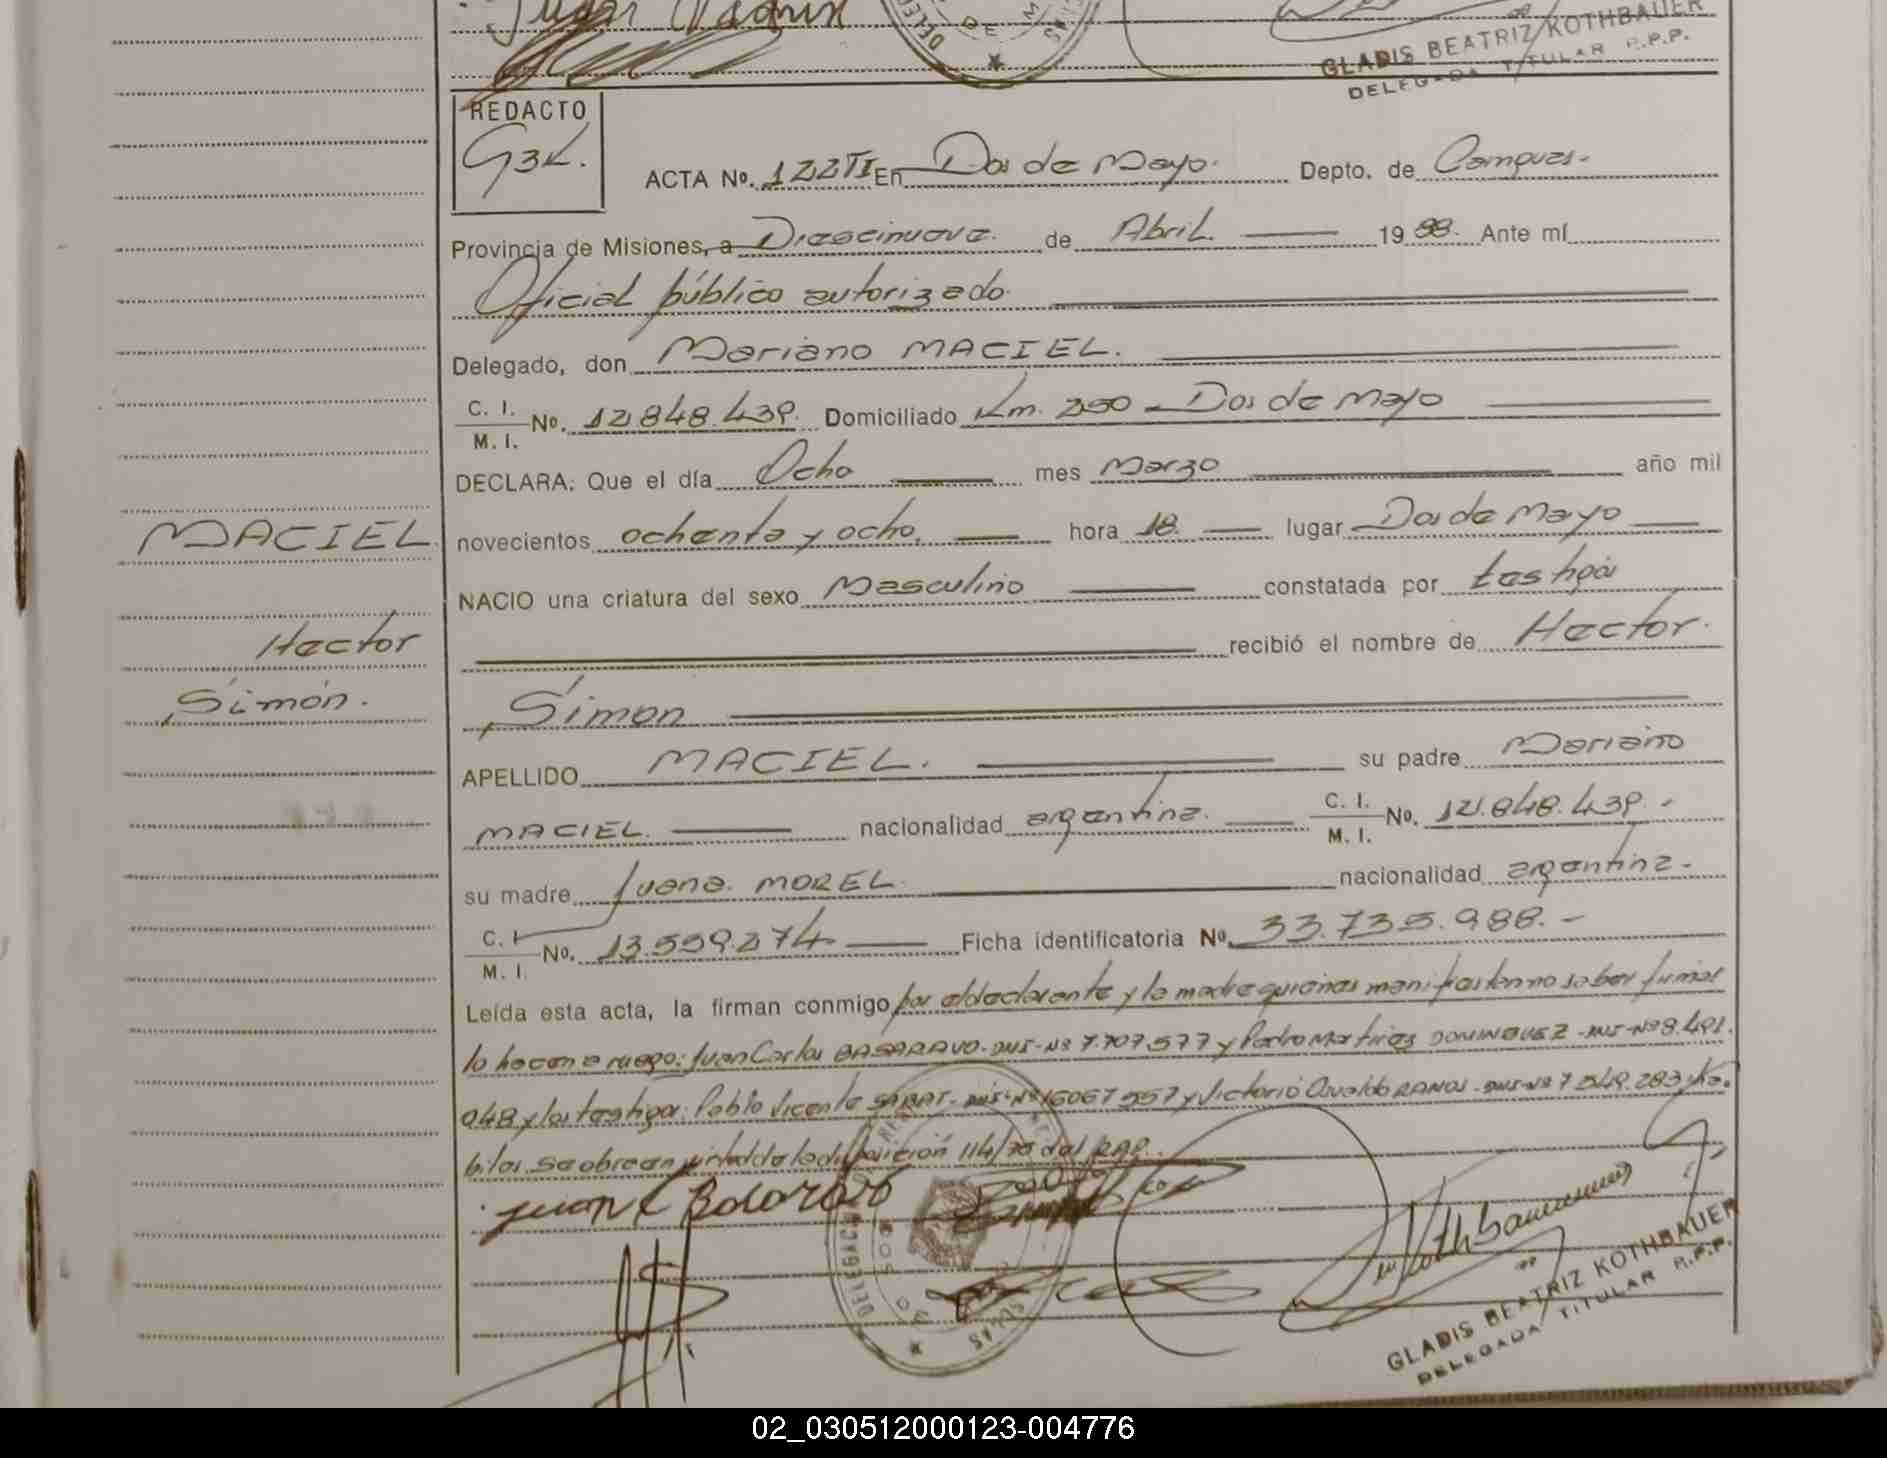 GLADIS BEATRIZ KOTHBAUER
DELEGADA TITULAR R.P.P.
REDACTO
GBK.
ACTA No. 122TI En Dos de Mayo. Depto. de Cainguas.-
Provincia de Misiones, a Diescinueve. de Abril. 19 88. Ante mí
Oficial público autorizado.
Delegado, don Mariano MACIEL.
C. I. M. I. No. 12.848.439. Domiciliado Km. 250 - Dos de Mayo
DECLARA: Que el día Ocho mes Marzo año mil
MACIEL novecientos ochenta y ocho. hora 18. lugar Dos de Mayo
NACIO una criatura del sexo Masculino constatada por testigos
Hector recibió el nombre de Hector.
Simón. Simon
APELLIDO MACIEL. su padre Mariano
MACIEL. nacionalidad argentina. C. I. M. I. No. 12.848.439.-
su madre Juana MOREL. nacionalidad argentina.-
C. I. M. I. No. 13.559.274 Ficha identificatoria No. 33.735.988.-
Leída esta acta, la firman conmigo por el declarante y la madre quienes manifiestan no saber firmar
lo hacen a ruego: Juan Carlos BASARAVO. DNI-Nº 7.707.577 y Pedro Martirez DOMINGUEZ-DNI-Nº 8.491.
048 y los testigos: Pablo Vicente SABAT-DNI-Nº 16067557 y Victorio Osvaldo RAMOS-DNI-Nº 7.549.283 ha.
biles. se obre en virtud de la disposición 114/70 del RPP.
GLADIS BEATRIZ KOTHBAUER
DELEGADA TITULAR R.P.P.
02_030512000123-004776